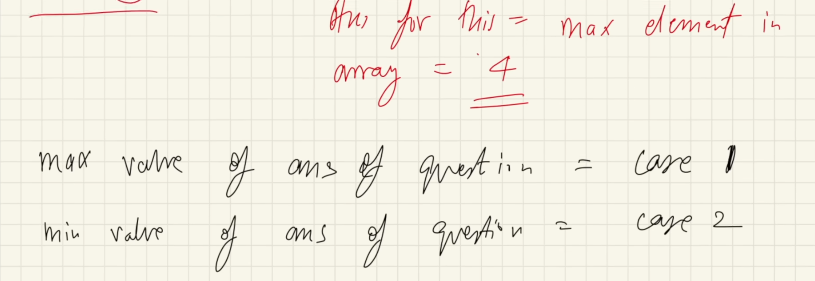 Ans for this = max element in
array = 4
max value of ans of question = case 1
min value of ans of question = case 2